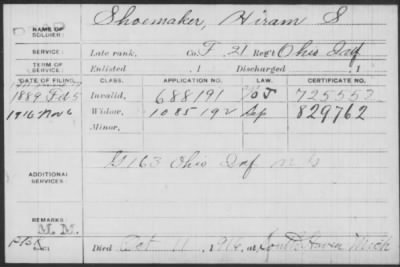 DEAD
NAME OF SOLDIER: Shoemaker, Hiram S
SERVICE: Late rank, Co. F. 21 Reg't Ohio Inf
TERM OF SERVICE: Enlisted , 1 Discharged , 1
DATE OF FILING. CLASS. APPLICATION NO. LAW. CERTIFICATE NO.
1889 Feb 5 Invalid, 688191 725552
1916 Nov 6 Widow, 1085192 Sep 829762
Minor,
G 163 Ohio Inf
ADDITIONAL SERVICES:
REMARKS:
M. M.
Died Oct 11, 1916, at South Haven Mich